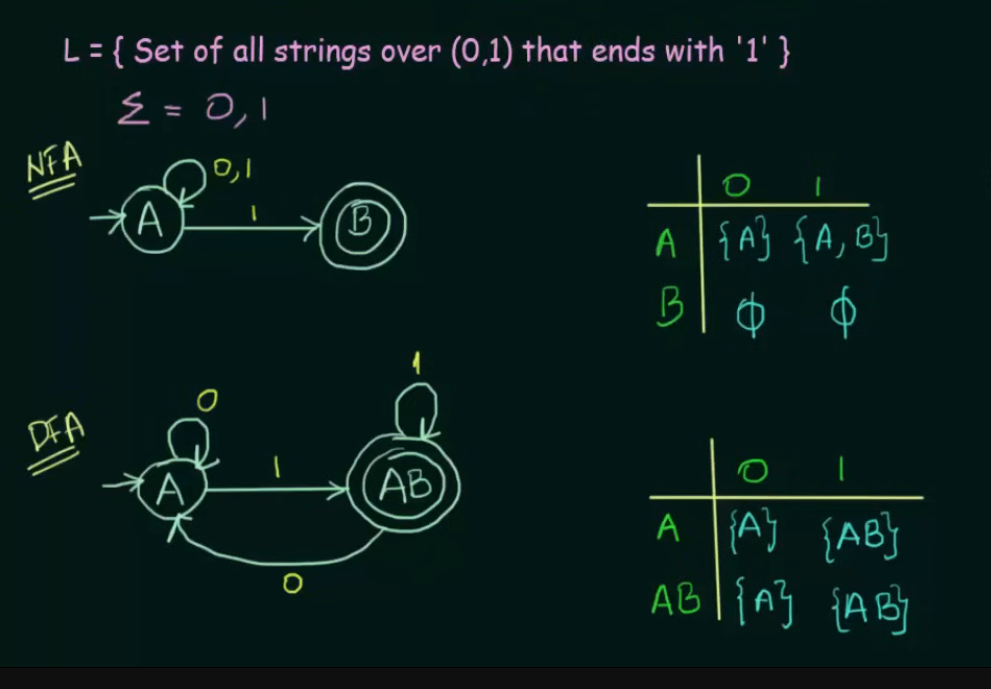 L = { Set of all strings over (0,1) that ends with '1' }
Σ = 0,1
NFA
0,1
A
1
B
0 1
A {A} {A, B}
B ϕ ϕ
DFA
0
1
A
1
AB
0
0 1
A {A} {AB}
AB {A} {AB}